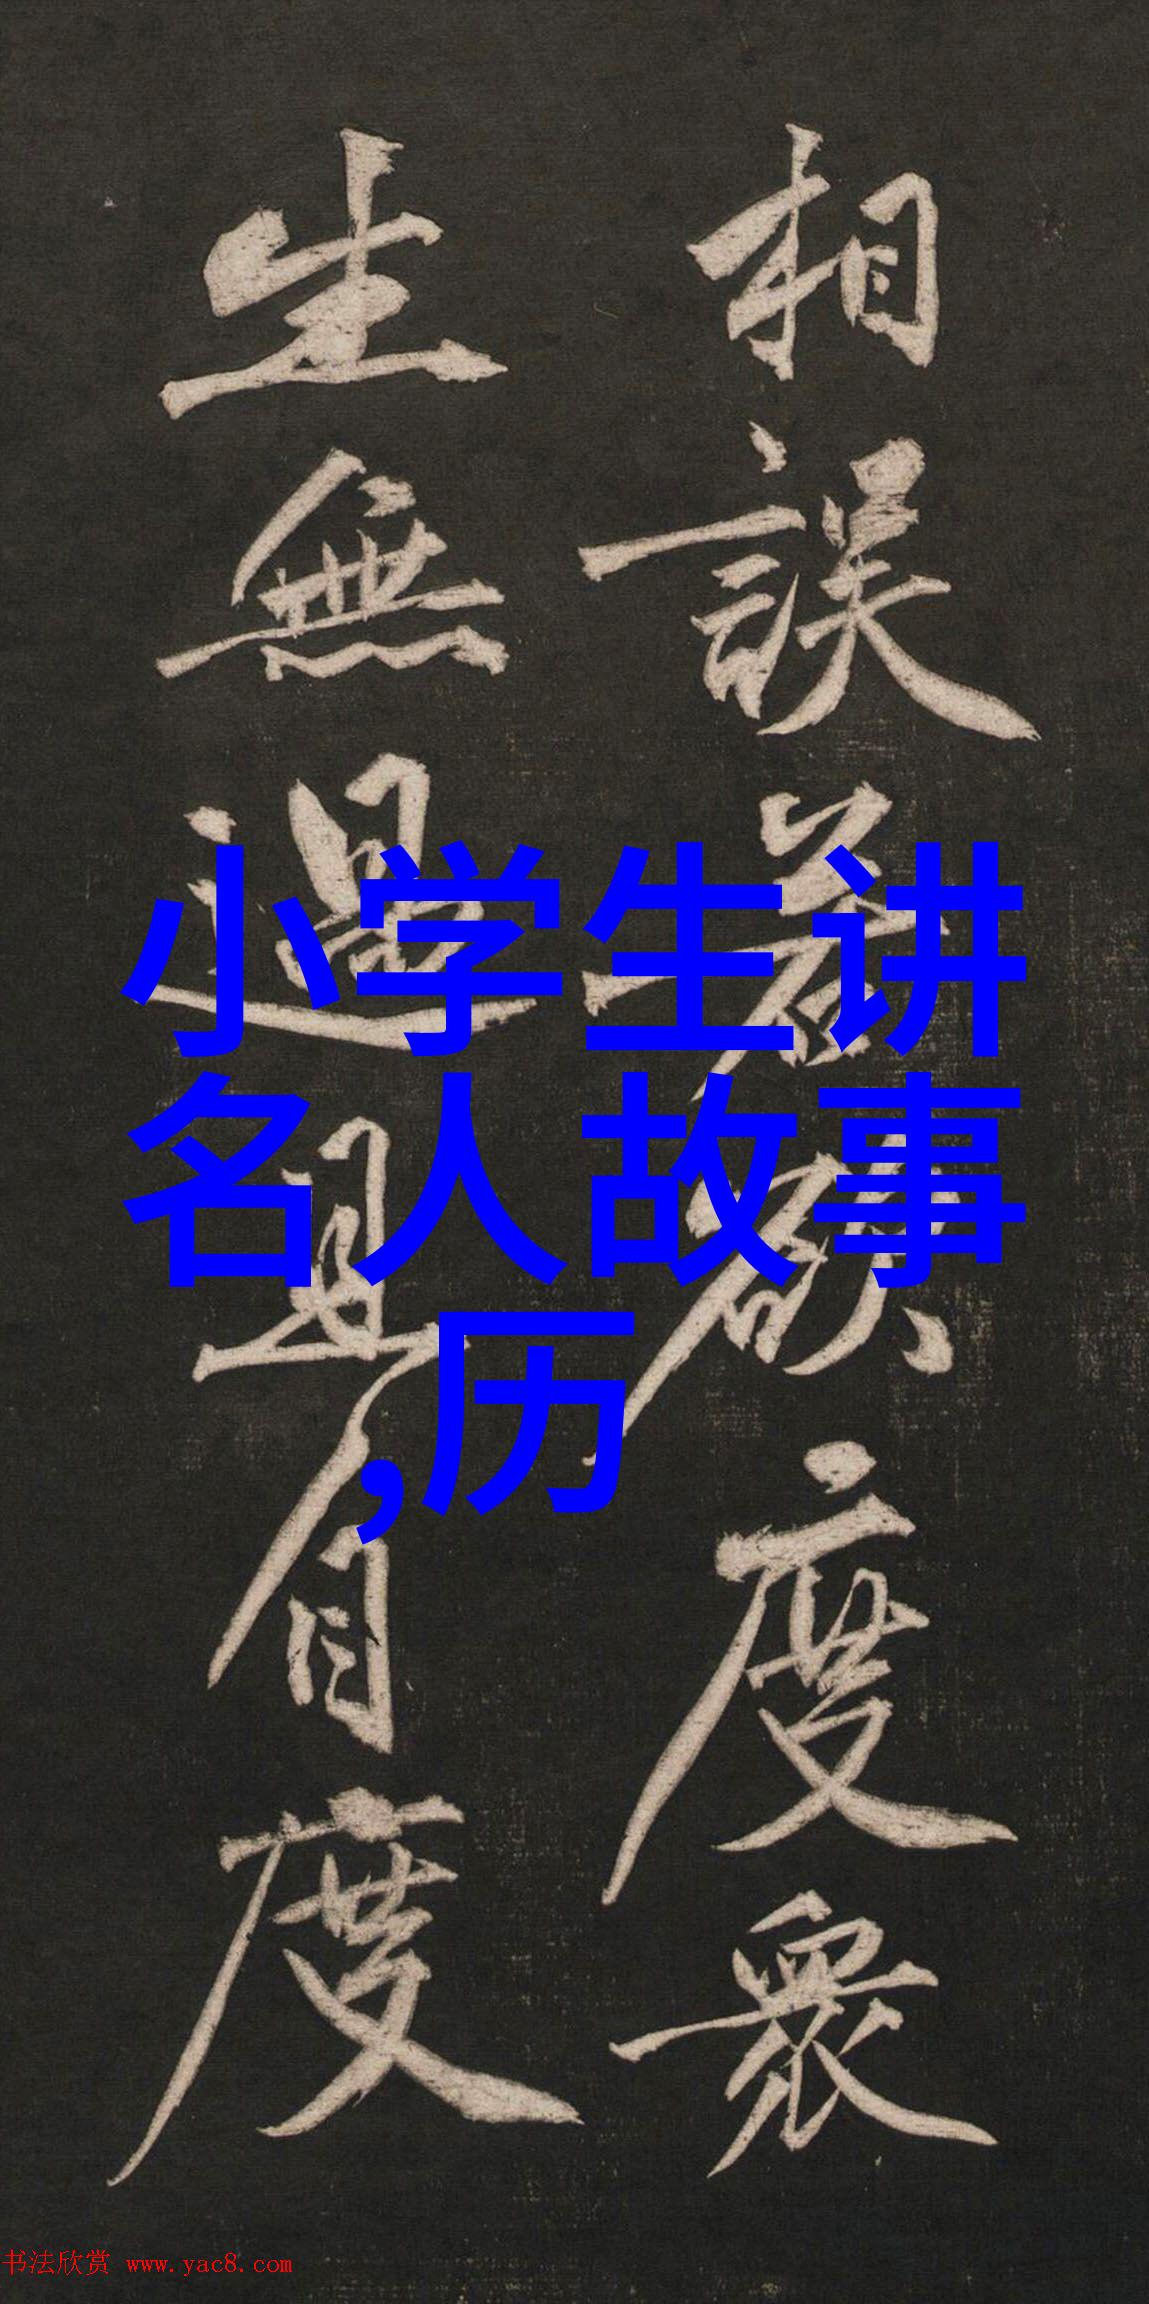 相誤若欲度衆
生無過且自度
小学生讲
名人故事
,历
书法欣赏 www.yac8.com